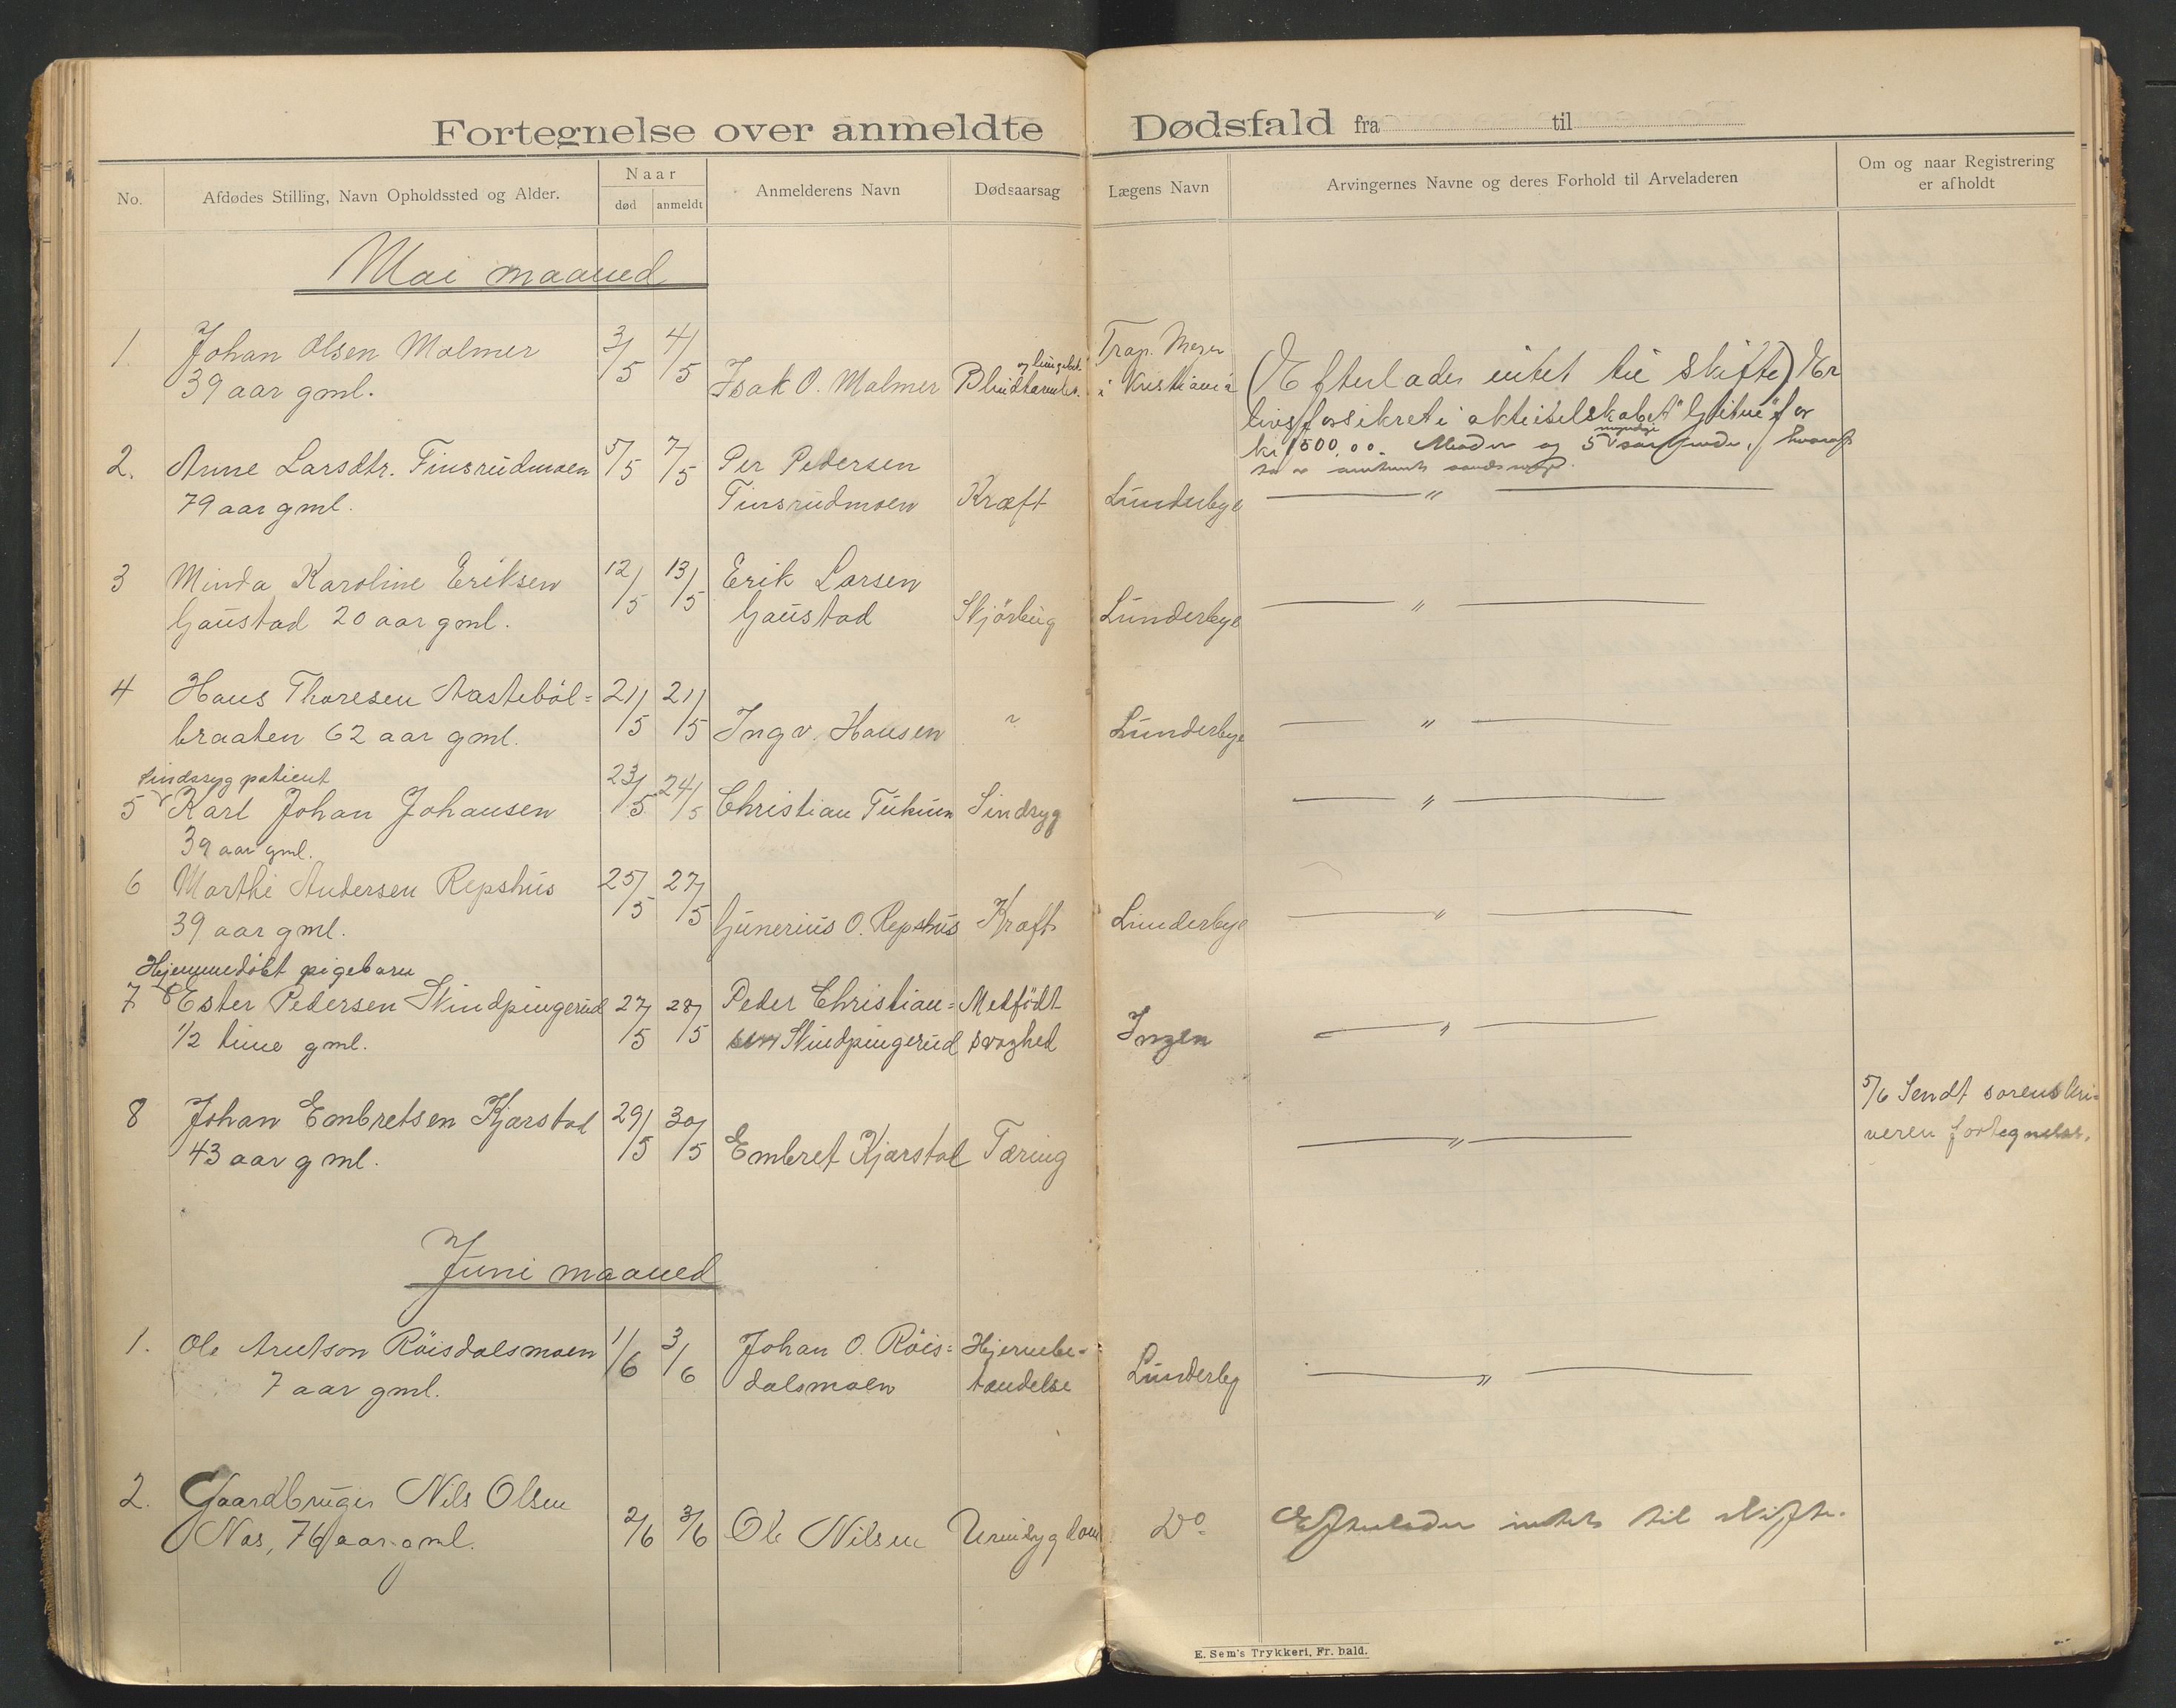 Fortegnelse over anmeldte Dødsfald fra til
No.
Afdødes Stilling, Navn Opholdssted og Alder.
Naar
død
anmeldt
Anmelderens Navn
Dødsaarsag
Lægens Navn
Arvingernes Navne og deres Forhold til Arveladeren
Om og naar Registrering
er afholdt
Mai maaned
1. Johan Olsen Malmer 3/5 4/5
39 aar gml.
Isak O. Malmer
Blindtarmbet.
i Kristiania
(Efterlader intet til skifte) Er
livsforsikret i aktieselskabet "Gjetne" for
kr 1500,00. Moder og 5
2. Anne Larsdtr. Tinsrudmoen 5/5 7/5 Per Pedersen
79 aar gml. Tinsrudmoen Kræft Lunderbye — " —
3 Minda Karoline Eriksen 12/5 13/5 Erik Larsen
Gaustad 20 aar gml. Gaustad Lunderbye — " —
4 Hans Thoresen Aastebøl= 21/5 21/5
braaten 62 aar gml. Ingv. Hansen " Lunderbye — " —
Sindssyg patient
5 Karl Johan Johansen 23/5 24/5 Christian Tukun Sindsyg — " —
39 aar gml.
6 Marthe Andersen Repshus 25/5 27/5
39 aar gml. Gunerius O. Repshus Kræft Lunderbye — " —
Hjemmedøbt pigebarn
7 Ester Pedersen Skindpungerud 27/5 28/5 Peder Christian= Medfødt
1/2 time gml. sen Skindpungerud svaghed Ingen — " —
8 Johan Embretsen Kjærstad 29/5 30/5
43 aar gml. Embret Kjærstad Tæring — " —
5/6 Sendt sorenskri=
veren fortegnelse.
Juni maaned
1. Ole Arntson Röisdalsmoen 1/6 3/6 Johan O. Röis= Hjernebe=
7 aar gml. dalsmoen tændelse Lunderby — " —
2. Gaardbruger Nils Olsen
Næs, 76 aar gml. 2/6 3/6 Ole Nilsen Do Efterlader intet til skifte.
E. Sem's Trykkeri, Fr. hald.